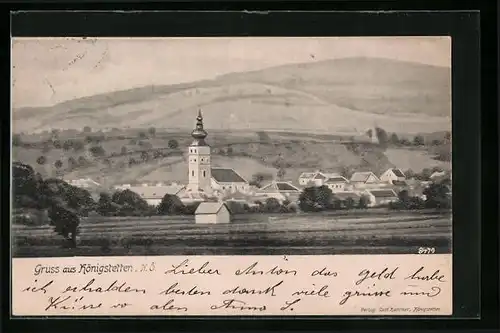 8474
Gruss aus Königstetten, N. Ö. Lieber Anton das geld habe
ich erhalten besten dank viele grüsse und
Küsse von allen Anna S.
Verlag: Gust. Kammerer, Königstetten.